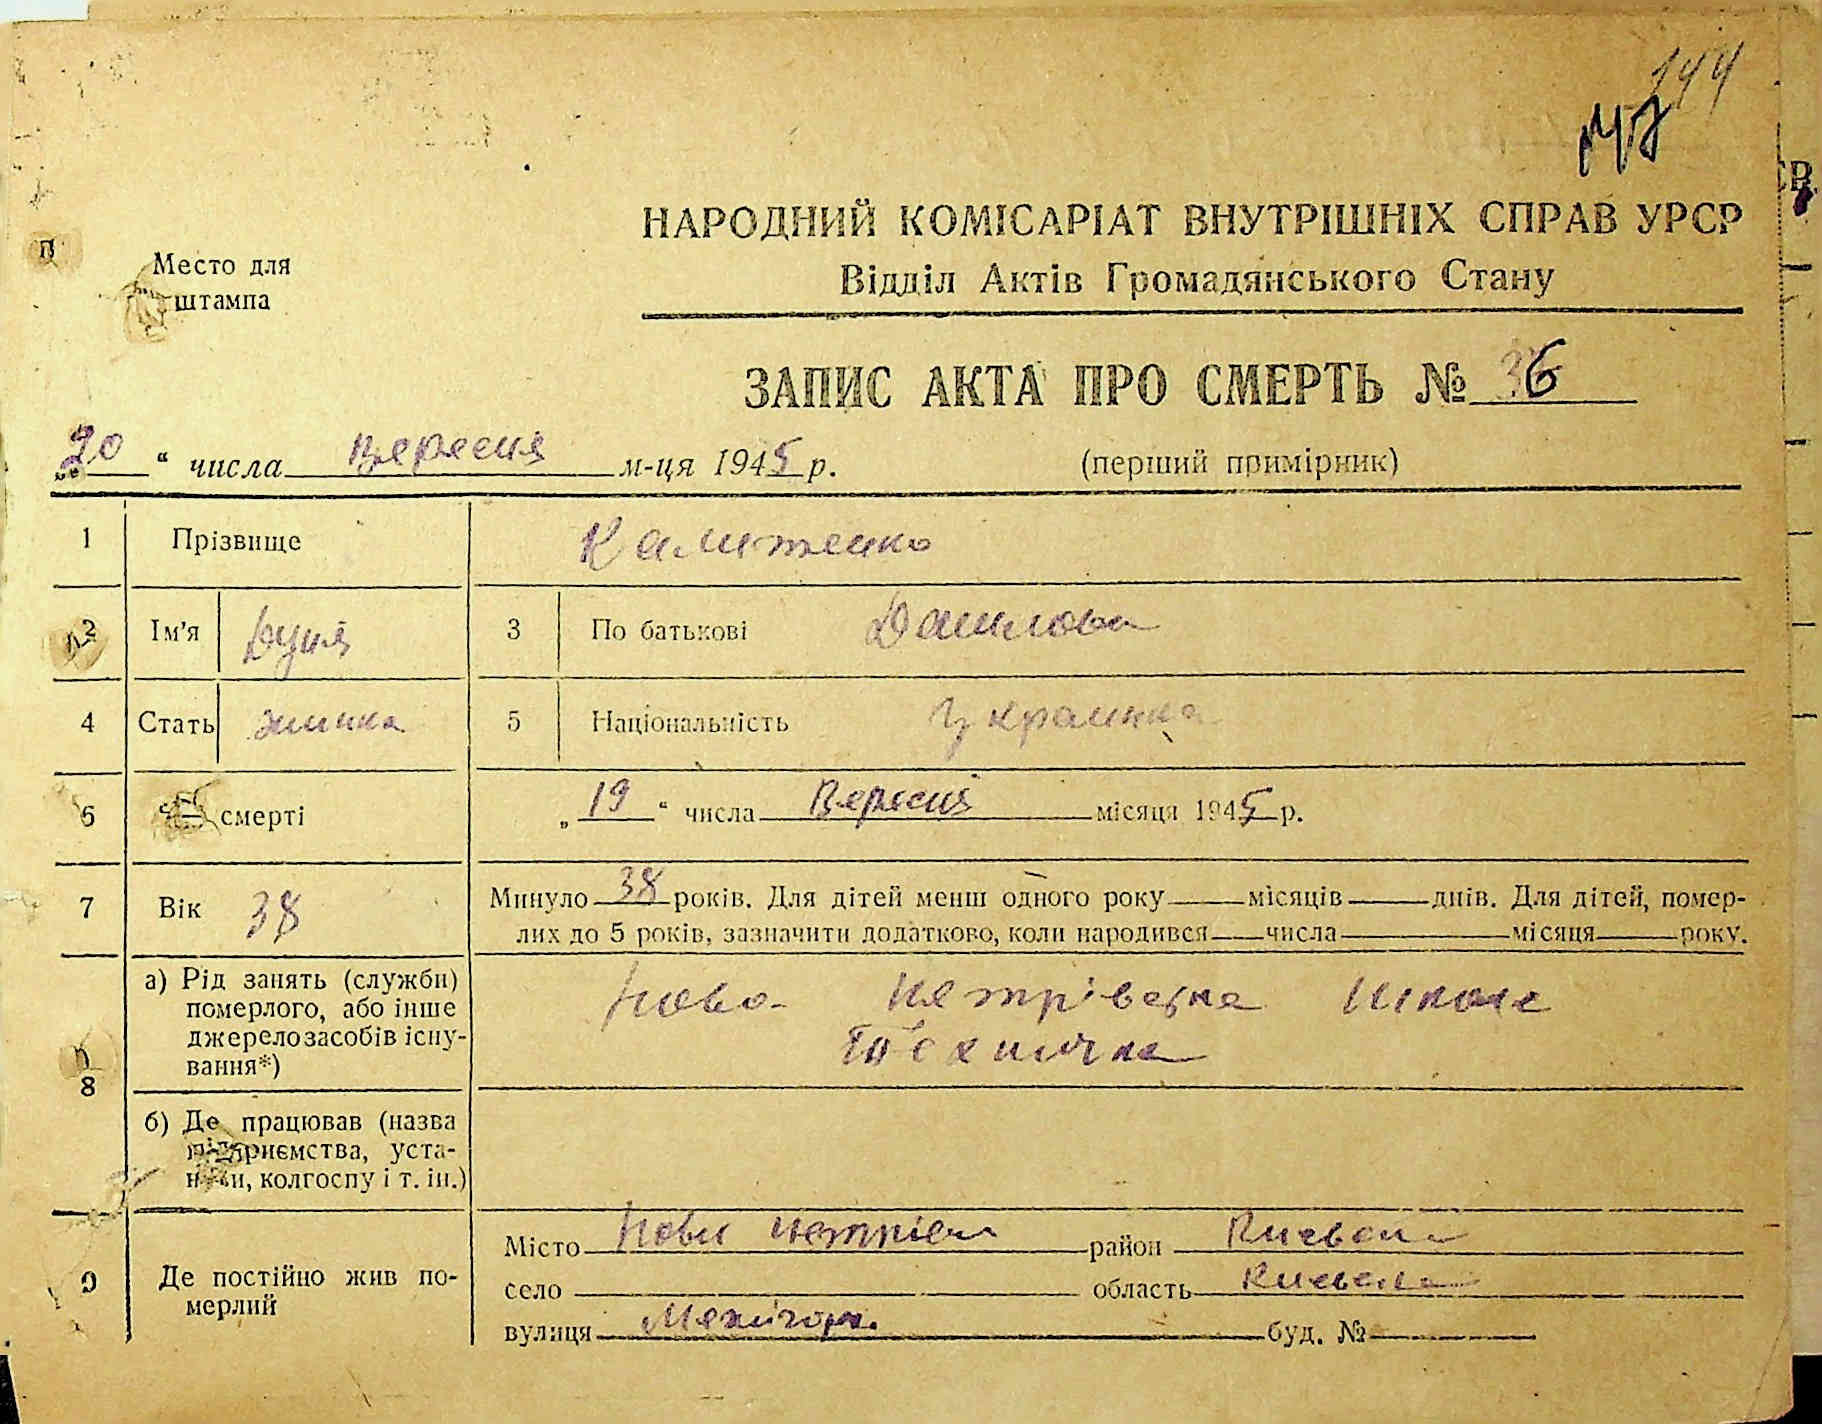 144
147
НАРОДНИЙ КОМІСАРІАТ ВНУТРІШНІХ СПРАВ УРСР
Відділ Актів Громадянського Стану
Место для
штампа
ЗАПИС АКТА ПРО СМЕРТЬ № 36
„20“ числа Вересня м-ця 1945 р. (перший примірник)
1 Прізвище Калитенко
2 Ім'я Дуня 3 По батькові Данилова
4 Стать жинка 5 Національність Украинка
6 смерті „19“ числа Вересня місяця 1945 р.
7 Вік 38 Минуло 38 років. Для дітей менш одного року місяців днів. Для дітей, помер-
лих до 5 років, зазначити додатково, коли народився числа місяця року.
8 а) Рід занять (служби)
померлого, або інше
джерело засобів існу-
вання*)
Ново- Петрівська Школа
Техничка
б) Де працював (назва
підприємства, уста-
нови, колгоспу і т. ін.)
9 Де постійно жив по-
мерлий
Місто Нови Петрівц район
село область
вулиця буд. №